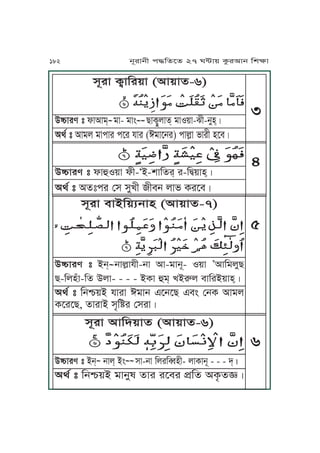 ১৮২ নূরানী পদ্ধতিতে ২৭ ঘন্টায় কুরআন শিক্ষা
সূরা ক্বারিয়া (আয়াত-৬)
فَأَمَّا مَنْ ثَقُلَتْ مَوَازِيْنُهُ ۝ ৩
উচ্চারণ ঃ ফাআম্- মা- মাং-- ছাক্বুলাত্ মাওয়া-ঝী-নুহূ।
অর্থ ঃ আমল মাপার পরে যার (ঈমানের) পাল্লা ভারী হবে।
فَهُوَ فِيْ عِيْشَةٍ رَّاضِيَةٍ ۝ ৪
উচ্চারণ ঃ ফাহুওয়া ফী-'ই-শাতির্ র-দ্বিয়াহ্।
অর্থ ঃ অতঃপর সে সুখী জীবন লাভ করবে।
সূরা বাইয়্যিনাহ (আয়াত-৭)
إِنَّ الَّذِيْنَ اٰمَنُوْا وَعَمِلُوا الصّٰلِحٰتِ ৫
أُولٰئِكَ هُمْ خَيْرُ الْبَرِيَّةِ ۝
উচ্চারণ ঃ ইন্-নাল্লাযী-না আ-মানূ- ওয়া 'আমিলুছ্
ছ-লিহাঁ-তি উলা- - - - ইকা হুম্ খইরুল বারিইয়াহ্।
অর্থ ঃ নিশ্চয়ই যারা ঈমান এনেছে এবং নেক আমল
করেছে, তারাই সৃষ্টির সেরা।
সূরা আদিয়াত (আয়াত-৬)
إِنَّ الْاِنْسَانَ لِرَبِّهٖ لَكَنُوْدٌ ۝ ৬
উচ্চারণ ঃ ইন্- নাল্ ইং-- সা-না লিরব্বিহী- লাকানূ - - - দ্।
অর্থ ঃ নিশ্চয়ই মানুষ তার রবের প্রতি অকৃতজ্ঞ।